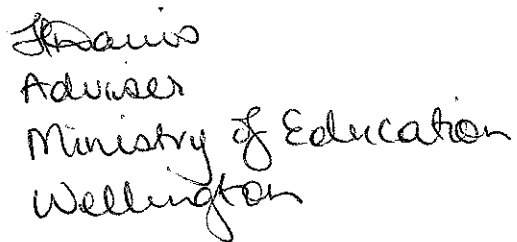 Adviser
Ministry of Education
Wellington